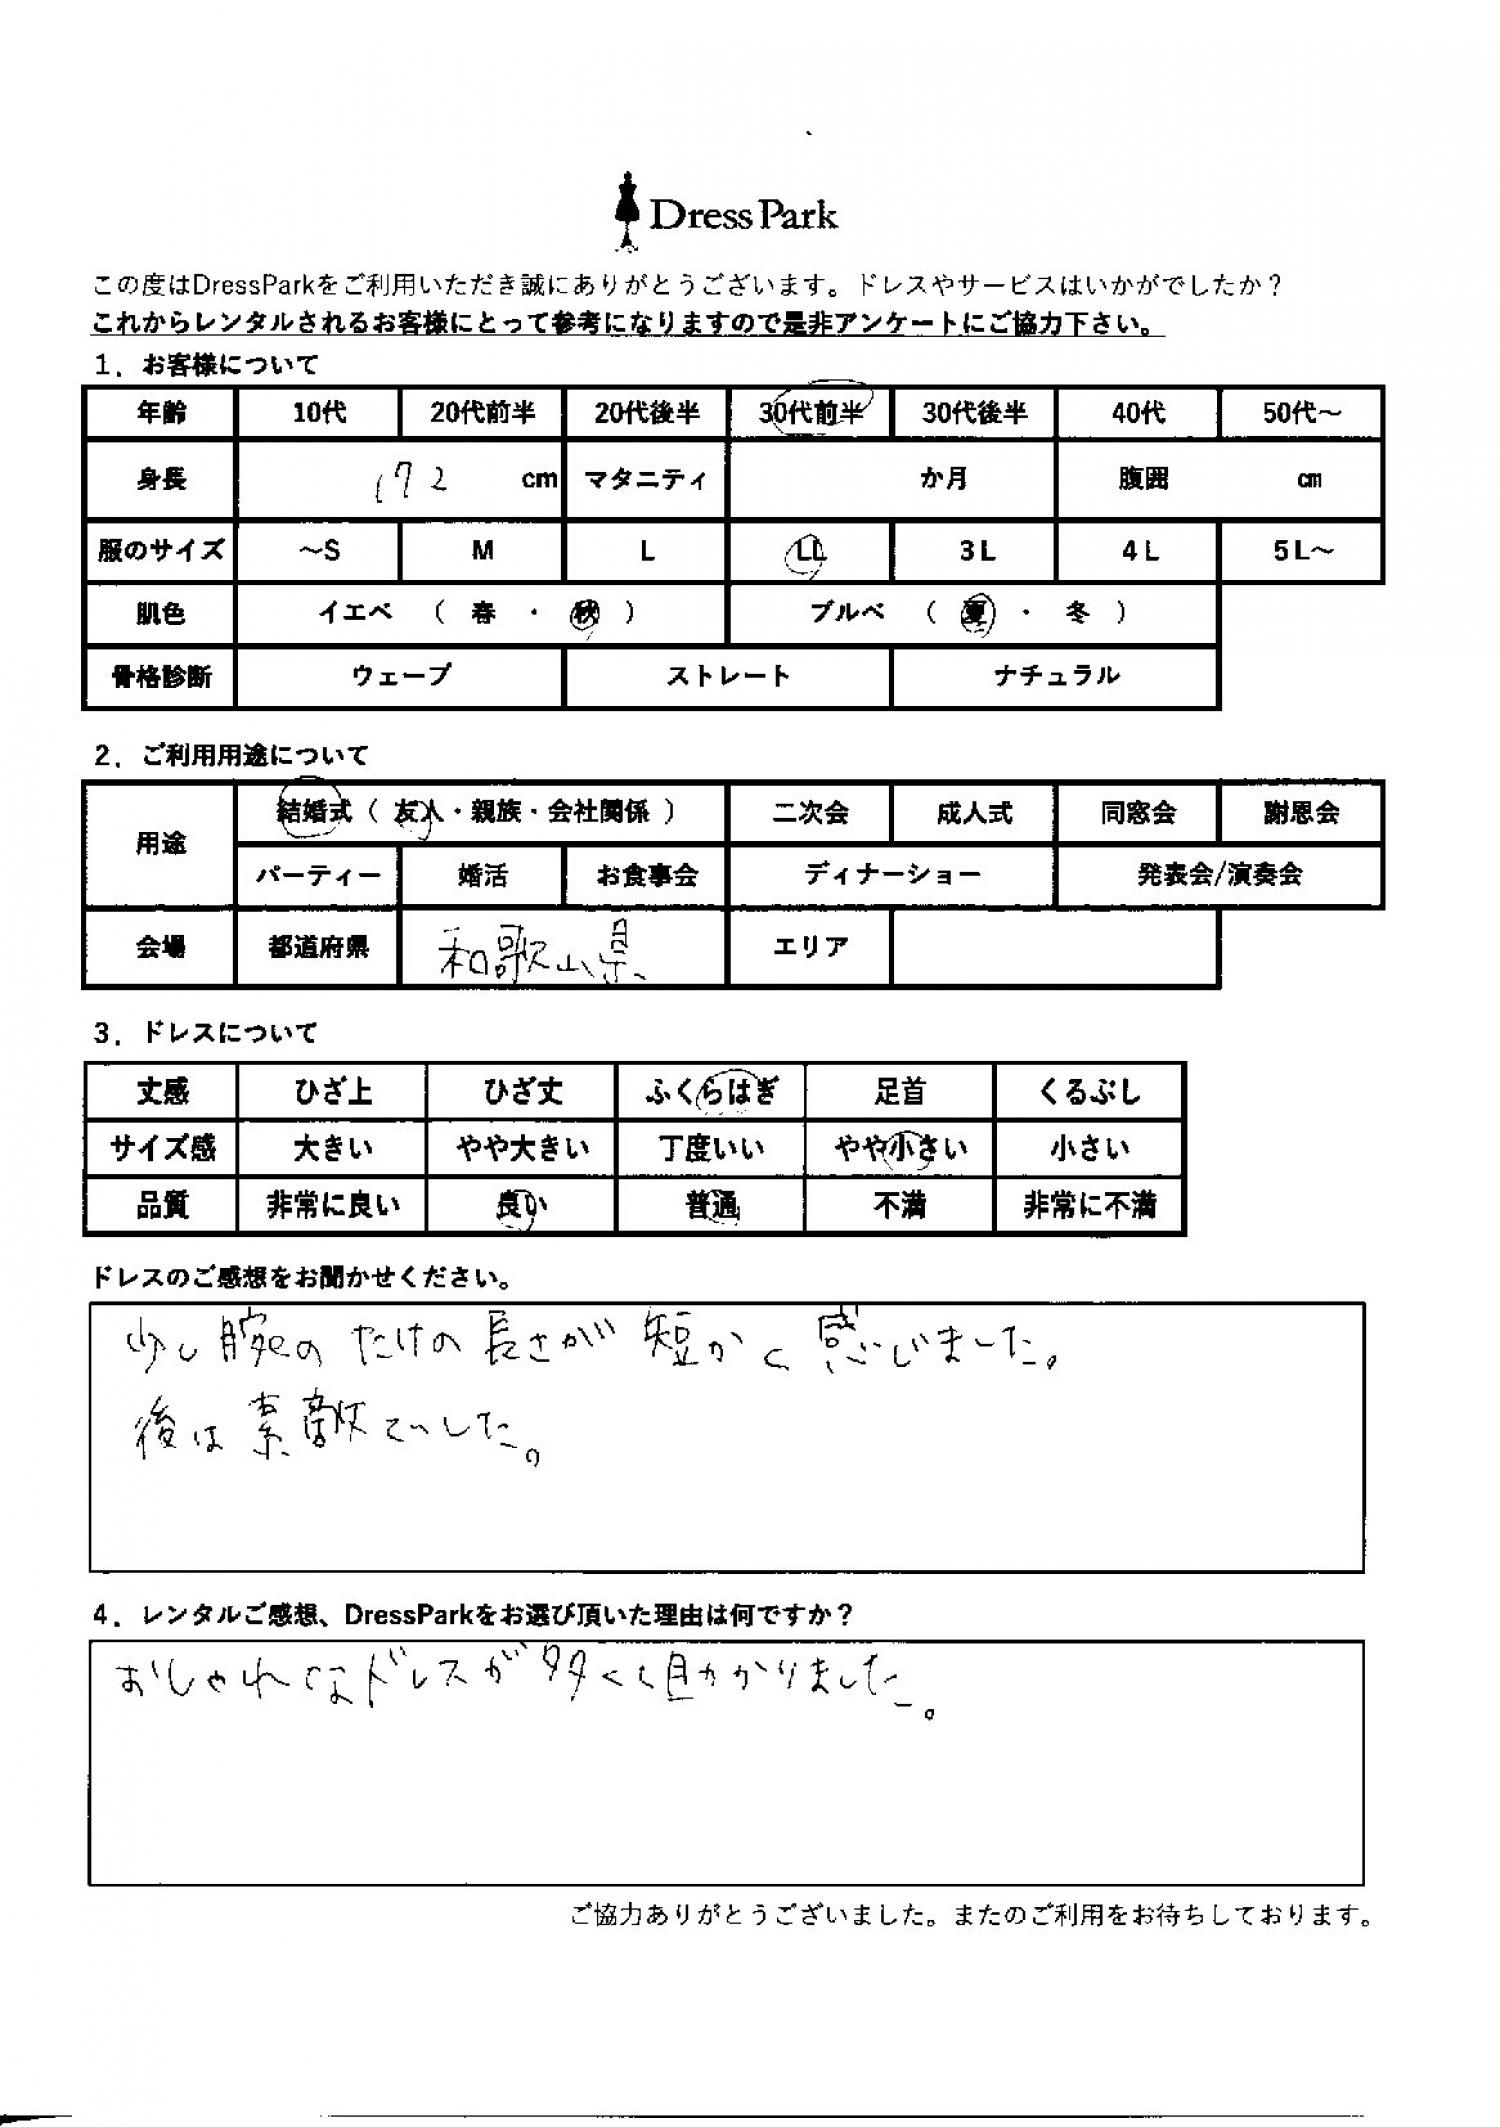 Dress Park
この度はDressParkをご利用いただき誠にありがとうございます。ドレスやサービスはいかがでしたか？
これからレンタルされるお客様にとって参考になりますので是非アンケートにご協力下さい。
1．お客様について
年齢 10代 20代前半 20代後半 30代前半 30代後半 40代 50代～
身長 172 cm マタニティ か月 腹囲 ㎝
服のサイズ ～S M L LL 3L 4L 5L～
肌色 イエベ （ 春 ・ 秋 ） ブルベ （ 夏 ・ 冬 ）
骨格診断 ウェーブ ストレート ナチュラル
2．ご利用用途について
用途 結婚式（ 友人・親族・会社関係 ） 二次会 成人式 同窓会 謝恩会
パーティー 婚活 お食事会 ディナーショー 発表会/演奏会
会場 都道府県 和歌山県 エリア
3．ドレスについて
丈感 ひざ上 ひざ丈 ふくらはぎ 足首 くるぶし
サイズ感 大きい やや大きい 丁度いい やや小さい 小さい
品質 非常に良い 良い 普通 不満 非常に不満
ドレスのご感想をお聞かせください。
少し腕の たけの 長さが 短かく 感じました。
後は 素敵でした。
4．レンタルご感想、DressParkをお選び頂いた理由は何ですか？
おしゃれなドレスが多く助かりました。
ご協力ありがとうございました。またのご利用をお待ちしております。